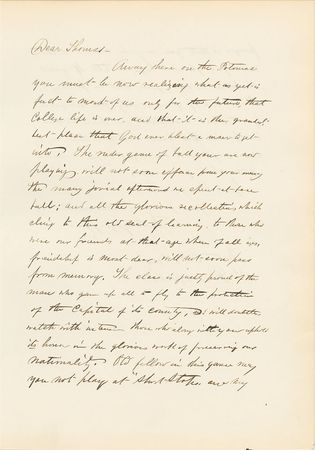 Dear Thomas –
Away there on the Potomac
you must be now realizing what as yet is
fact to most of us only for the future, that
College life is over, and that it is the grandest
best place that God ever let a man to get
into. The ruder game of ball your are now
playing will not soon efface from your memory
the many jovial afternoons we spent at base
ball; and all the glorious recollections which
cling to this old seat of learning, to those who
were our friends at that age when of all ages,
friendship is most dear, will not soon pass
from memory. The class is justly proud of the
man who gave up all to fly to the protection
of the Capital of its country, & will doubtless
watch with interest those who along with you uphold
its honor in the glorious work of preserving our
nationality. Old fellow in this game may
you not play at "Short Stop", are my